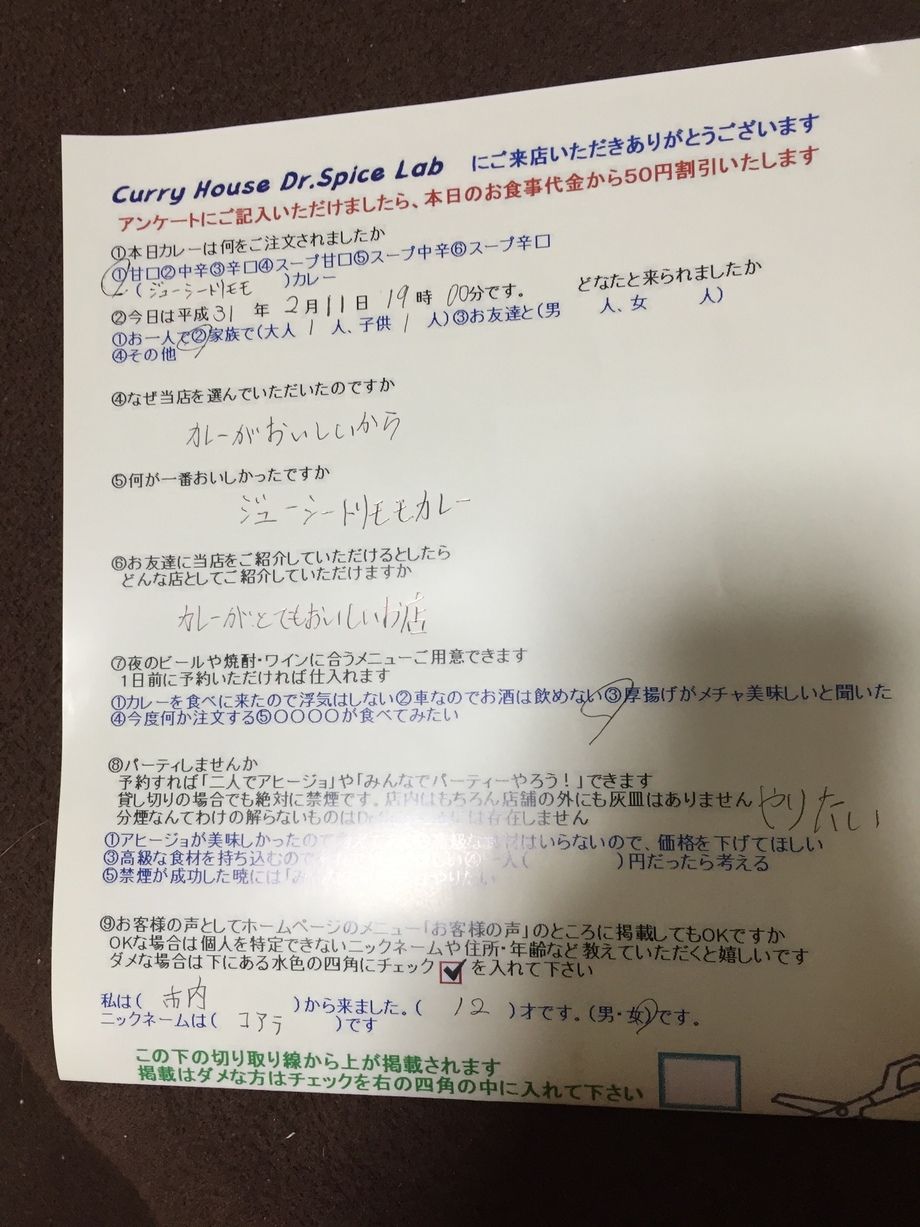 Curry House Dr.Spice Lab にご来店いただきありがとうございます
アンケートにご記入いただけましたら、本日のお食事代金から50円割引いたします
①本日カレーは何をご注文されましたか
①甘口②中辛③辛口④スープ甘口⑤スープ中辛⑥スープ辛口
(ジューシードリモモ)カレー
②今日は平成31年2月11日19時00分です。 どなたと来られましたか
①お一人で②家族で(大人1人、子供1人)③お友達と(男 人、女 人)
④その他
④なぜ当店を選んでいただいたのですか
カレーがおいしいから
⑤何が一番おいしかったですか
ジューシードリモモカレー
⑥お友達に当店をご紹介していただけるとしたら
どんな店としてご紹介していただけますか
カレーがとてもおいしいお店
⑦夜のビールや焼酎・ワインに合うメニューご用意できます
1日前に予約いただければ仕入れます
①カレーを食べに来たので浮気はしない②車なのでお酒は飲めない③厚揚げがメチャ美味しいと聞いた
④今度何か注文する⑤〇〇〇〇が食べてみたい
⑧パーティしませんか
予約すれば「二人でアヒージョ」や「みんなでパーティーやろう!」できます
貸し切りの場合でも絶対に禁煙です。店内はもちろん店舗の外にも灰皿はありません やりたい
分煙なんてわけの解らないものはDr は存在しません
①アヒージョが美味しかったので 材はいらないので、価格を下げてほしい
③高級な食材を持ち込むので 一人( )円だったら考える
⑤禁煙が成功した暁には「み やりたい
⑨お客様の声としてホームページのメニュー「お客様の声」のところに掲載してもOKですか
OKな場合は個人を特定できないニックネームや住所・年齢など教えていただくと嬉しいです
ダメな場合は下にある水色の四角にチェックを入れて下さい
私は(市内)から来ました。(12)才です。(男・女)です。
ニックネームは(コアラ)です
この下の切り取り線から上が掲載されます
掲載はダメな方はチェックを右の四角の中に入れて下さい